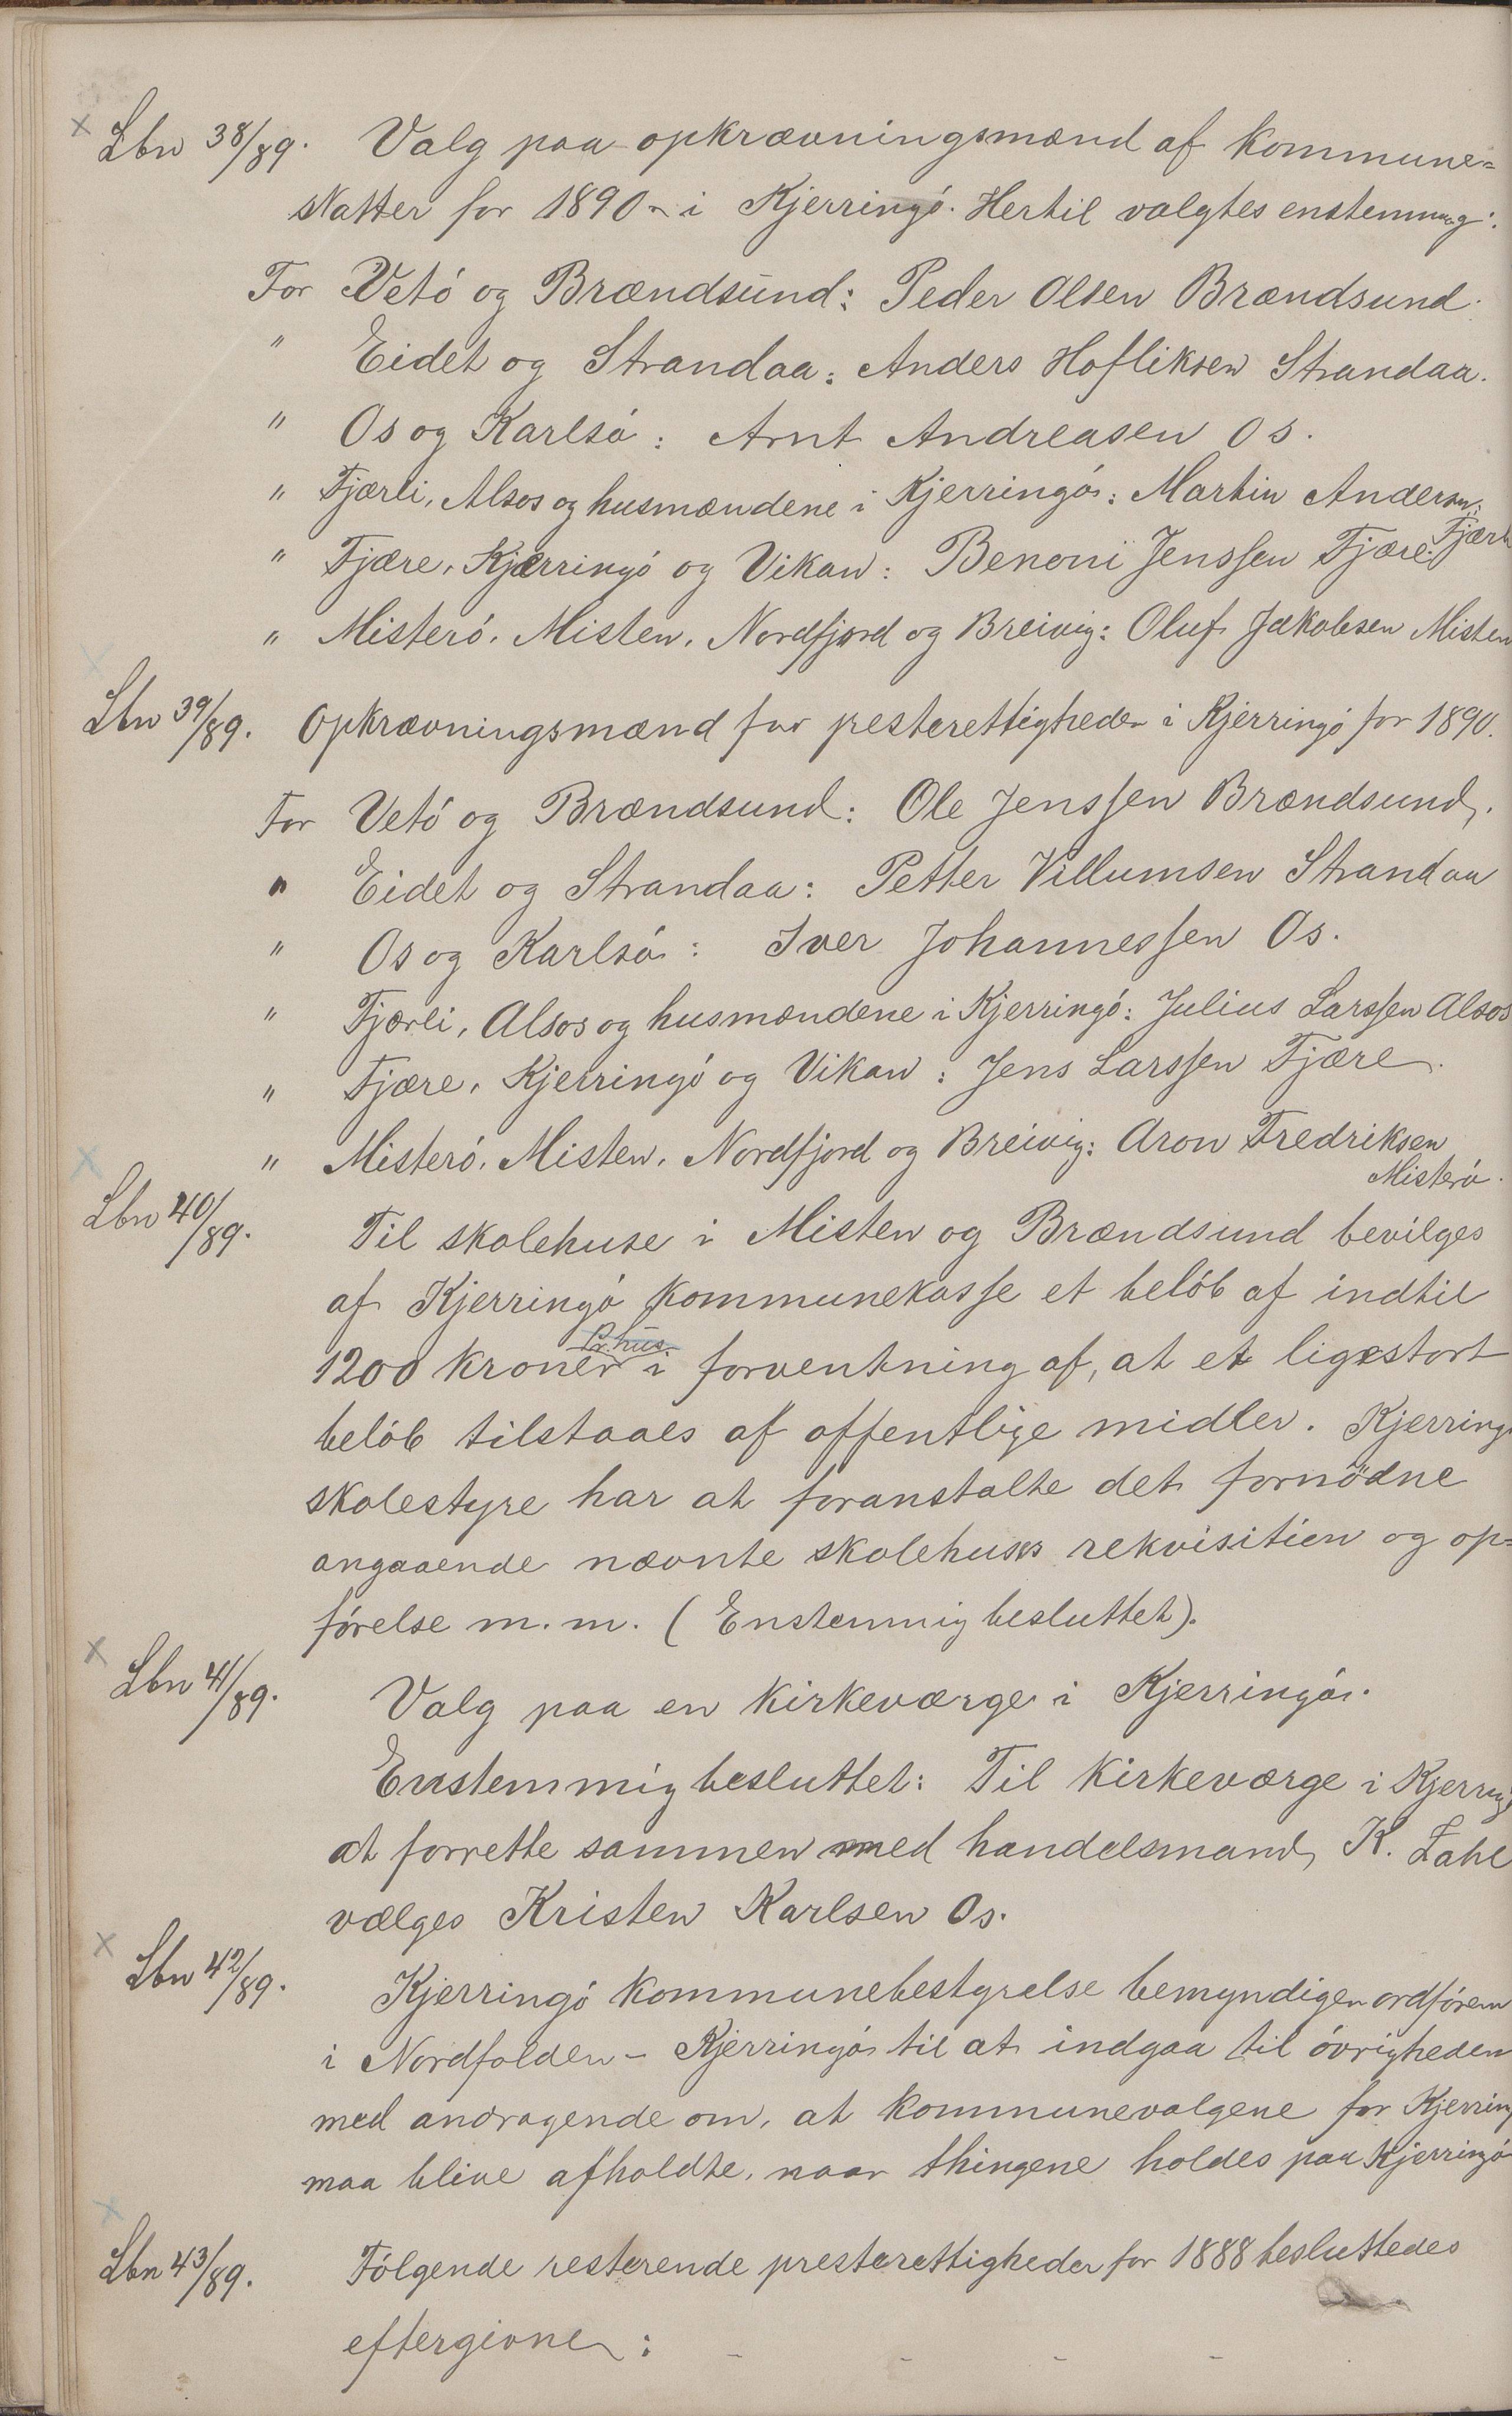 Lbn 38/89. Valg paa opkrævningsmænd af kommune=
skatter for 1890 i Kjerringó. Hertil valgtes enstemmig:
For Vetó og Brændsund: Peder Olsen Brændsund.
" Eidet og Strandaa: Anders Hofliksen Strandaa.
" Os og Karlsó: Arnt Andreasen Os.
" Fjærli, Alsos og husmændene i Kjerringó: Martin Andersen,
Fjærli
" Fjære, Kjærringó og Vikan: Benoni Jenssen Fjære.
" Misteró, Misten, Nordfjord og Breivig: Oluf Jakobsen Misten
Lbn 39/89. Opkrævningsmænd for presterettigheder i Kjerringó for 1890.
For Vetó og Brændsund: Ole Jenssen Brændsund,
" Eidet og Strandaa: Petter Villumsen Strandaa
" Os og Karlsó: Iver Johannessen Os.
" Fjærli, Alsos og husmændene i Kjerringó: Julius Larssen Alsos
" Fjære, Kjerringó og Vikan: Jens Larssen Fjære.
" Misteró, Misten, Nordfjord og Breivig: Aron Fredriksen
Misteró.
Lbn 40/89. Til skolehuse i Misten og Brændsund bevilges
af Kjerringó kommunekasse et belób af indtil
Pr. hus
1200 kroner i forventning af, at et ligestort
belób tilstaaes af offentlige midler. Kjerringó
skolestyre har at foranstalte det fornödne
angaaende nævnte skolehuses rekvisition og op=
fórelse m.m. (Enstemmig besluttet).
Lbn 41/89. Valg paa en kirkeværge i Kjerringó.
Enstemmig besluttet: Til kirkeværge i Kjerringó
at forrette sammen med handelsmand K. Zahl
vælges Kristen Karlsen Os.
Lbn 42/89. Kjerringó kommunebestyrelse bemyndiger ordfóren
i Nordfolden - Kjerringó til at indgaa til óvrigheden
med andragende om, at kommunevalgene for Kjerring
maa blive afholdte, naar thingene holdes paa Kjerringó
Lbn 43/89. Fólgende resterende presterettigheder for 1888 besluttedes
eftergivne: